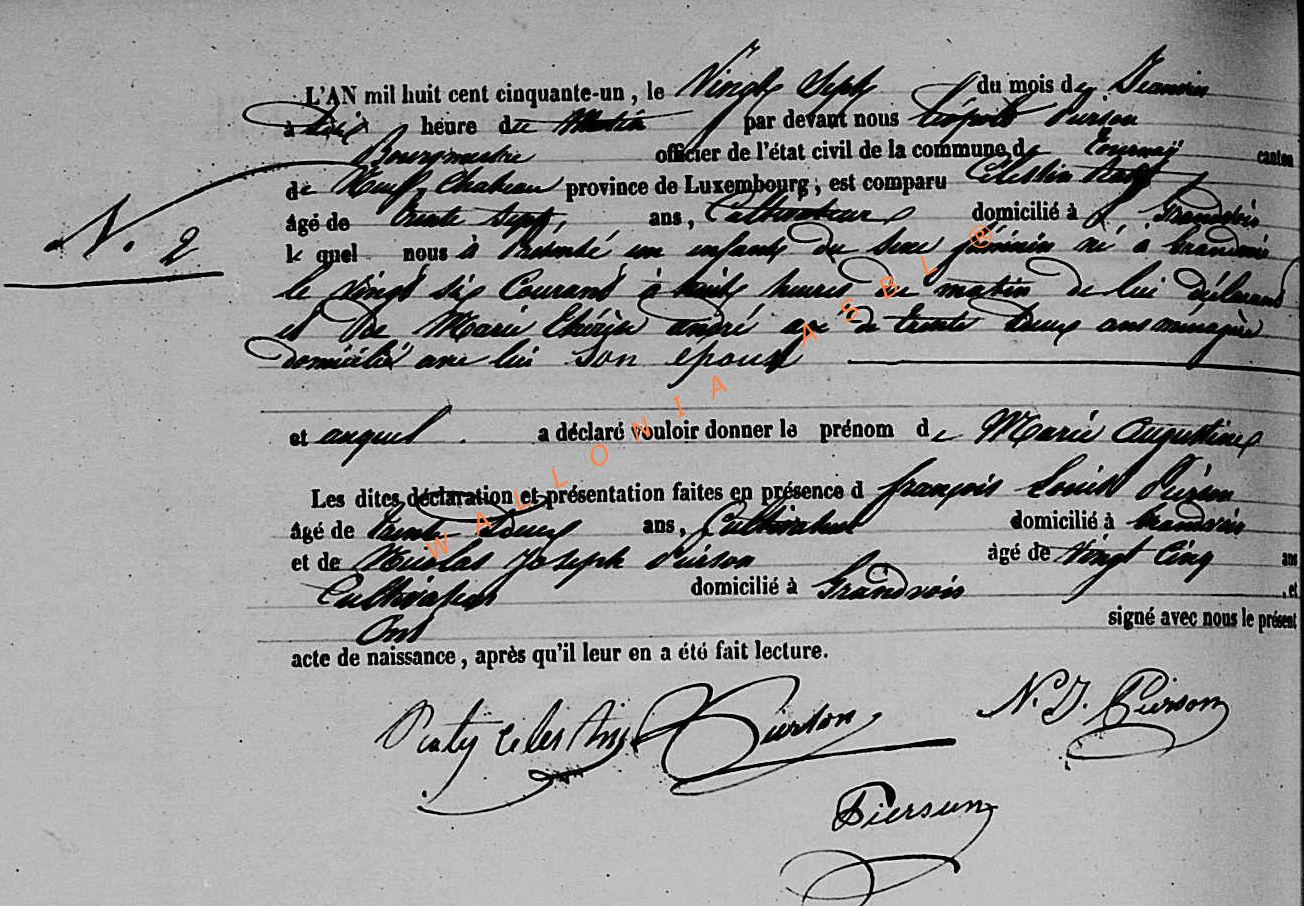 L'AN mil huit cent cinquante-un, le Vingt Sept du mois de Janvier
à dix heure du Matin par devant nous Léopold Pierson
Bourgmestre officier de l'état civil de la commune de Tournay canton
de Neufchateau province de Luxembourg, est comparu Célestin
N. 2
âgé de trente Sept, ans, Cultivateur domicilié à Grandvoir
le quel nous à Présenté un enfant du sexe féminin né à Grandvoir
le vingt six Courant à huit heures du matin de lui déclarant
et de Marie Thérèse André agé de trente deux ans ménagère
domicilié avec lui son epouse
et auquel a déclaré vouloir donner le prénom de Marie Augustine
Les dites déclaration et présentation faites en présence d françois Louis Pierson
âgé de ans, Cultivateur domicilié à Grandvoir
et de Nicolas Joseph Pierson âgé de Vingt Cinq ans
Cultivateur domicilié à Grandvoir , et
Ont signé avec nous le présent
acte de naissance, après qu'il leur en a été fait lecture.
Celestin Pierson N. J. Pierson
Pierson
WALLONIA ASBL ®